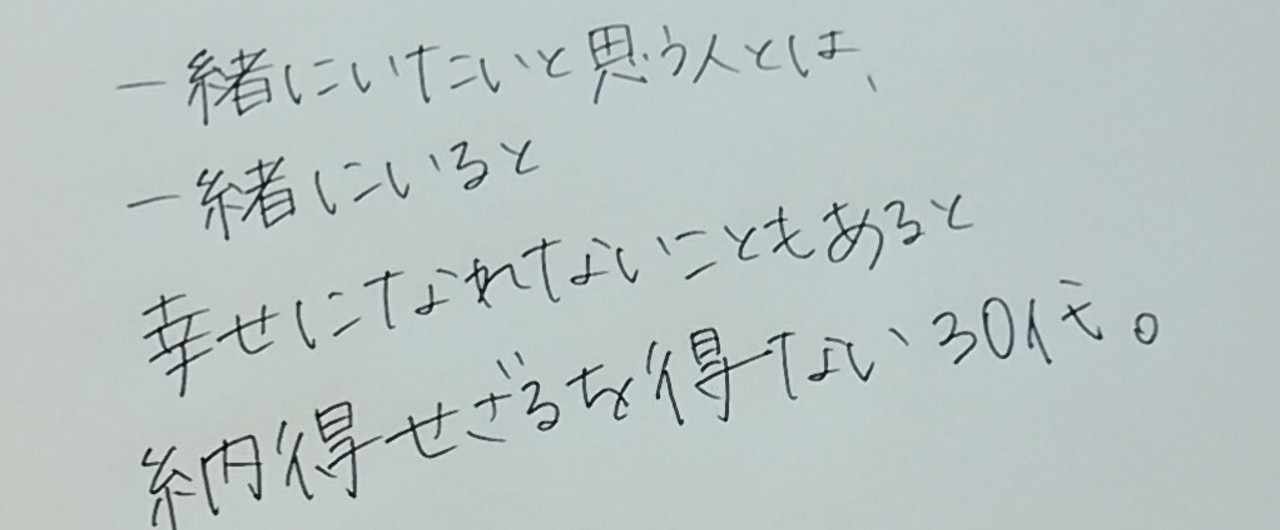 一緒にいたいと思う人とは、
一緒にいると
幸せになれないこともあると
納得せざるを得ない30代。